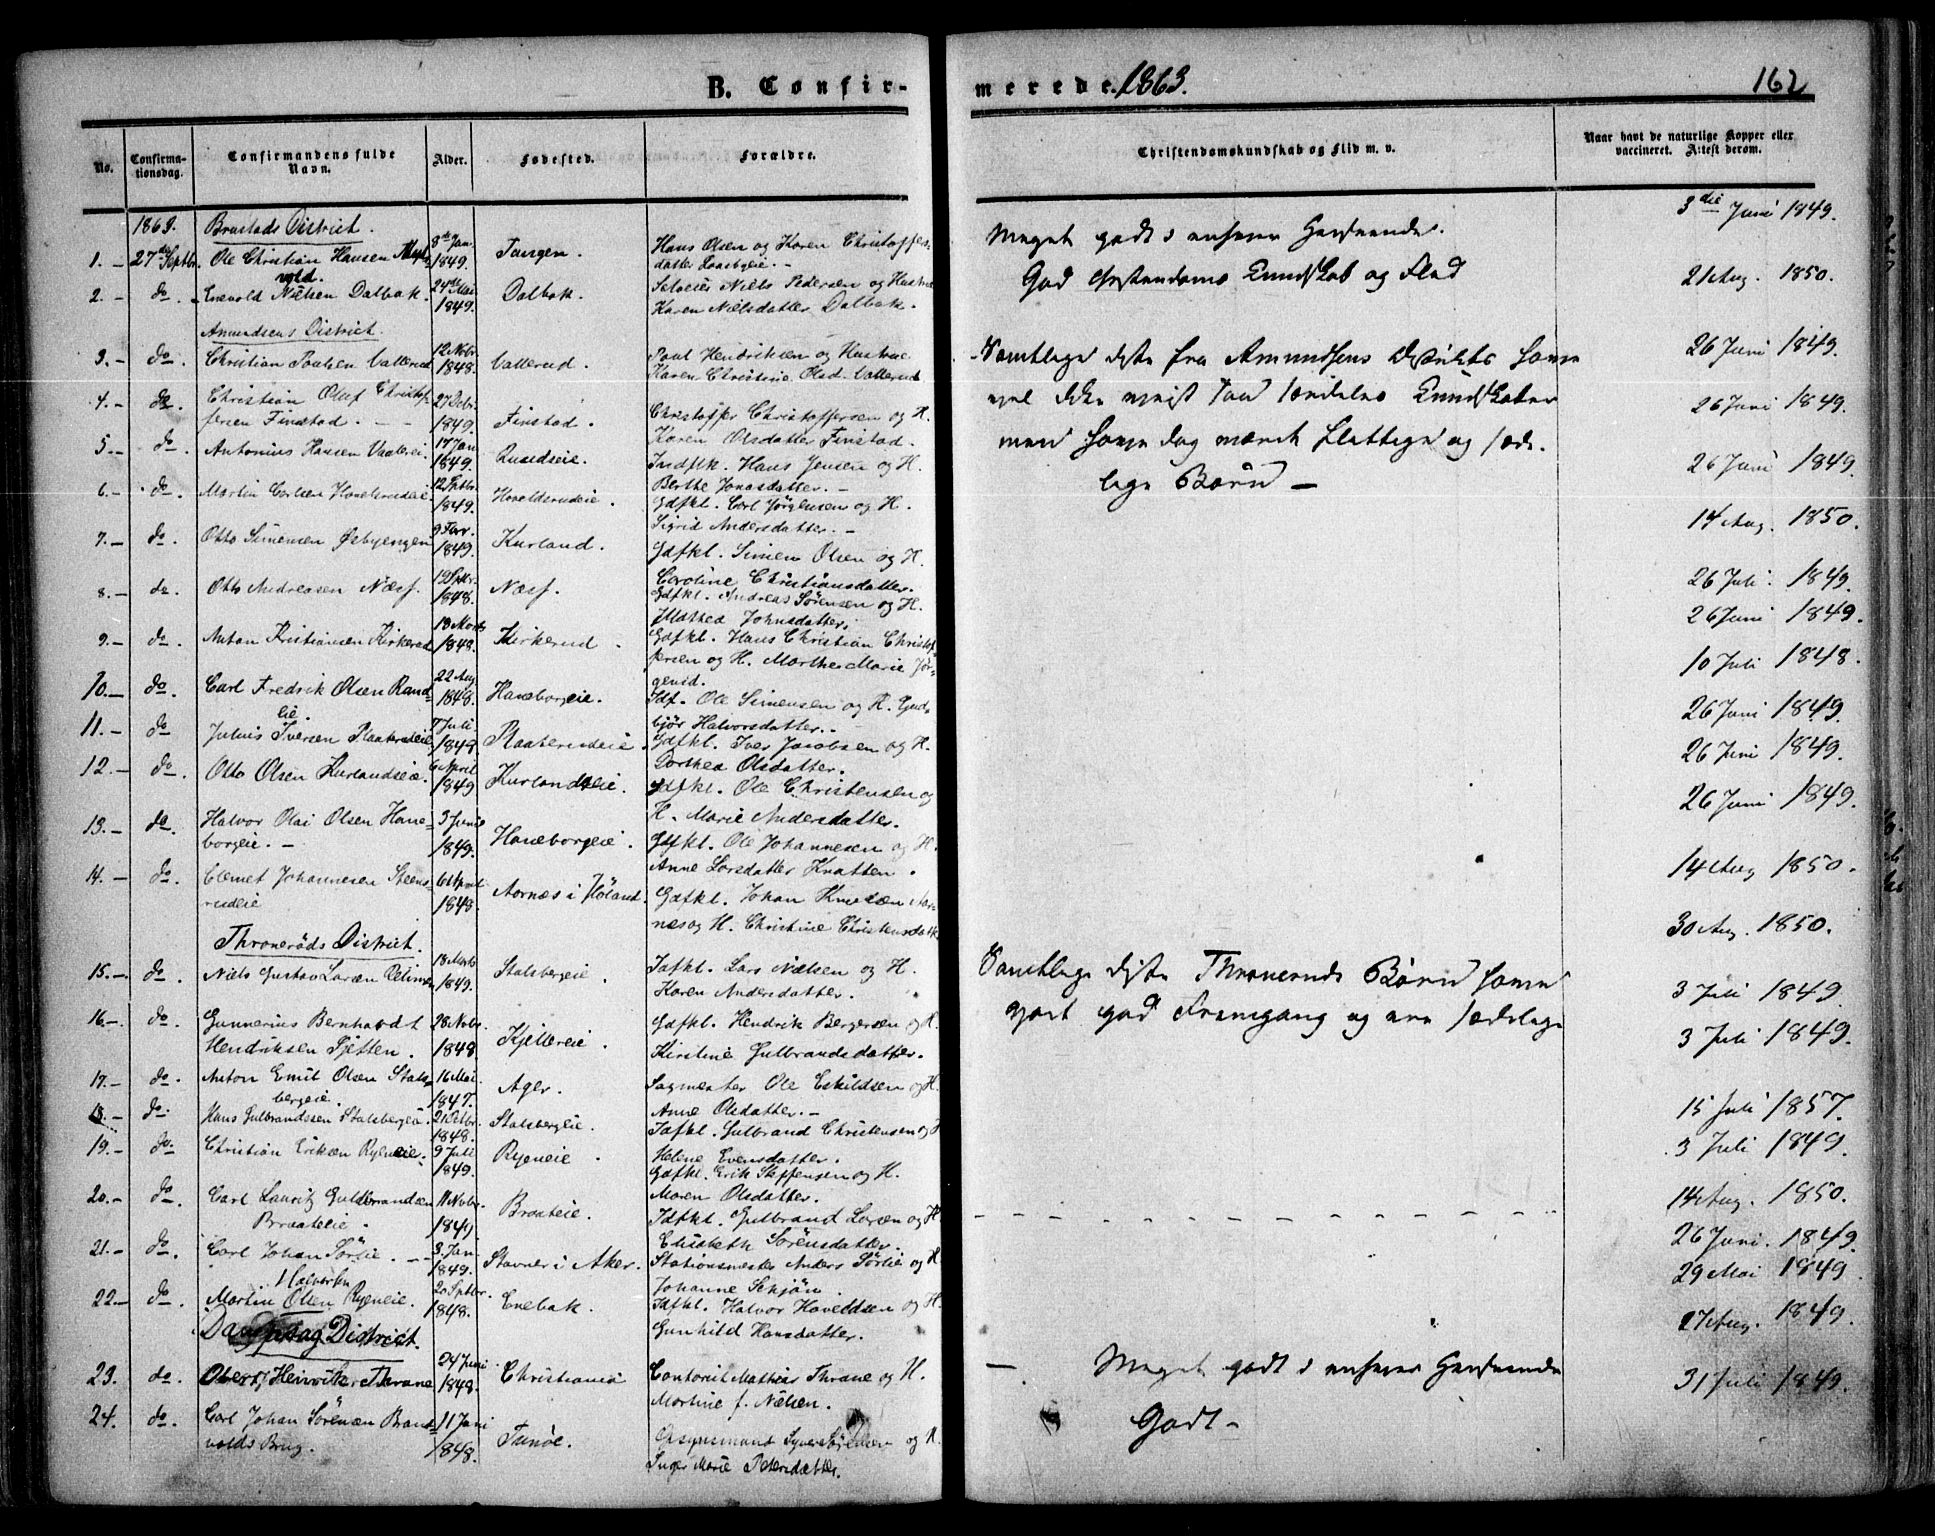 B. Confir-
merede. 1863.
162
No.
Confirma-
tionsdag.
Confirmandens fulde
Navn.
Alder.
Fødested.
Forældre.
Christendomskundskab og Flid m. v.
Naar havt de naturlige Kopper eller
vaccineret. Attest derom.
1863. Brustads District.
1. 27de Septbr. Ole Christian Hansen 3de Jan. 1849. Tangen. Hans Olsen og Karen Christoffers-
datter
Meget godt i enhver Henseende.
3die Juni 1849.
2. do. Evevold Nielsen Dalbak. 24de Mai 1849. Dalbak. Selveier Niels Pedersen og Hustru
Karen Nielsdatter Dalbak.
God Christendoms Kundskab og Flid
21 Aug. 1850.
Amundsens District.
3. do. Christian Paulsen Vallerud 12 Nobr. 1848. Vallerud. Paul Hendriksen og Hustrue
Karen Christine Olsd. Vallerud
Samtlige disse fra Amundsens Distrikts have
26 Juni 1849.
4. do. Christian Oluf Christof-
fersen Finstad. 27 Debr. 1849. Finstad. Christoffer Christoffersen og H.
Karen Olsdatter Finstad.
26 Juni 1849.
5. do. Antonius Hansen 17 Jan 1849. Indstk. Hans Jensen og H.
Berthe Jonasdatter.
men have dog været flittige og sæde-
lige Børn
26 Juni 1849.
6. do. Martin Carlsen 12 Sptbr. 1849. Gdfkl. Carl Jørgensen og H.
Sigrid Andersdatter.
14 Aug. 1850.
7. do. Otto Simensen Østbyengen 9 Febr. 1849. Kurland. Gdfkl. Simen Olsen og H.
Caroline Christiansdatter.
26 Juli 1849.
8. do. Otto Andreasen Næss. 12 Sptbr. 1848. Næss. Gdfkl. Andreas Sørensen og H.
Mathea Johnsdatter.
26 Juni 1849.
9. do. Anton Kristiansen Kirkerud 13 Marts 1848. Kirkerud. Gdfkl. Hans Christian Christof-
fersen og H. Marthe Marie Jør-
gensd.
10 Juli 1848.
10. do. Carl Fredrik Olsen Rand-
eie. 22 Aug 1848. Haneborgeie. Idf. Ole Simensen og H. Gud-
bjør Halvorsdatter.
26 Juni 1849.
11. do Julius Iversen Plaaterudeie 7 Juli 1848. Plaaterudeie. Gdfkl. Iver Jacobsen og H.
Dorthea Olsdatter.
26 Juni 1849.
12. do. Otto Olsen Kurlandseie. 6 April 1849 Kurlandseie. Gdfkl. Ole Christensen og
H. Marie Andersdatter.
26 Juni 1849.
13. do. Halvor Olai Olsen Hane-
borgeie. 3 Junie 1849. Haneborgeie. Gdfkl. Ole Johannesen og H.
Anne Larsdatter Knatten.
14 Aug 1850.
14. do. Clemet Johannesen Steens-
rudeie April 1848. Aarnæs i Høland. Gdfkl. Johan Knudsen Aar-
næs og H. Christine Christensdatt.
30 Aug. 1850.
Thronerøds District.
15. do. Niels Gustav Larsen 13 Marts 1849. Stalsbergeie. Lars Nielsen og H.
Karen Andersdatter.
Samtlige disse Thronerøds Børn have
3 Juli 1849.
16. do. Gunnerius Bernhardt
Hendriksen Tjetten. 28 Nobr. 1848 Kjellereie. Gdfkl. Hendrik Bergersen og H.
Kirstine Gulbrandsdatter.
gjort god Fremgang og ere sædelige
3 Juli 1849.
17. do. Anton Emil Olsen Stals-
bergeie. 16 Mai. 1847. Ager. Sagmester Ole Eskildsen og H.
Anne Olsdatter.
15 Juli 1857.
18. do. Hans Gulbrandsen Stalsbergeie. 21 Octbr. 1848. Stalsbergeie. Gulbrand Christensen og H
Helene Evensdatter.
3 Juli 1849.
19. do. Christian Eriksen Ryeneie. 9 Juli 1849. Ryeneie. Gdfkl. Erik Steffensen og H.
Maren Olsdatter.
14 Aug. 1850.
20. do. Carl Lauritz Guldbrandsen
Braateeie. 11 Novbr. 1849. Braateie. Idfkl. Gulbrand Larsen og H.
Elisabeth Sørensdatter.
26 Juni. 1849.
21. do. Carl Johan Sørlie. 3. Jan 1849. Stavner i Aker. Stationsmester Anders Sørlie og H.
Johanne Schjøn.
29 Mai 1849.
22. do. Martin Olsen Ryeneie. Halvorsen 20 Sptbr. 1848. Enebak. Idfkl. Halvor Haveldsen og H.
Gunhild Hansdatter.
27 Aug. 1849.
District.
23. do. Obert Heinrik Thrane 24 Juni 1848. Christiania Contorist Mathias Thrane og H.
Martine f. Nielsen.
Meget godt i enhver Henseende
31 Juli 1849.
24. do Carl Johan Sørensen Brand-
volds Brug. 11 Juni 1848. Tunøe. Opsynsmand Syver Sørensen og H.
Inger Marie Petersdatter.
Godt